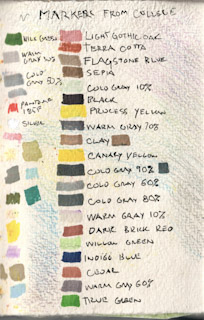 MARKERS FROM COLLEGE
NILE GREEN
WARM
GRAY
COLD
GRAY 50%
PANTONE
185F
SILVER
LIGHT GOTHIC OAK
TERRA COTTA
FLAGSTONE BLUE
SEPIA
COLD GRAY 10%
BLACK
PROCESS YELLOW
WARM GRAY 70%
CLAY
CANARY YELLOW
COLD GRAY 90%
COLD GRAY 60%
COLD GRAY 80%
WARM GRAY 10%
DARK BRICK RED
WILLOW GREEN
INDIGO BLUE
CEDAR
WARM GRAY 60%
TRUE GREEN